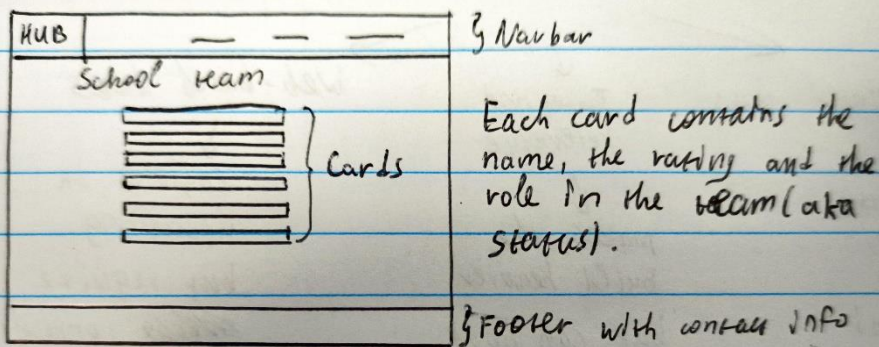 HUB
} Navbar
School team
Cards
Each card contains the
name, the rating and the
role in the team (aka
status).
} Footer with contact info